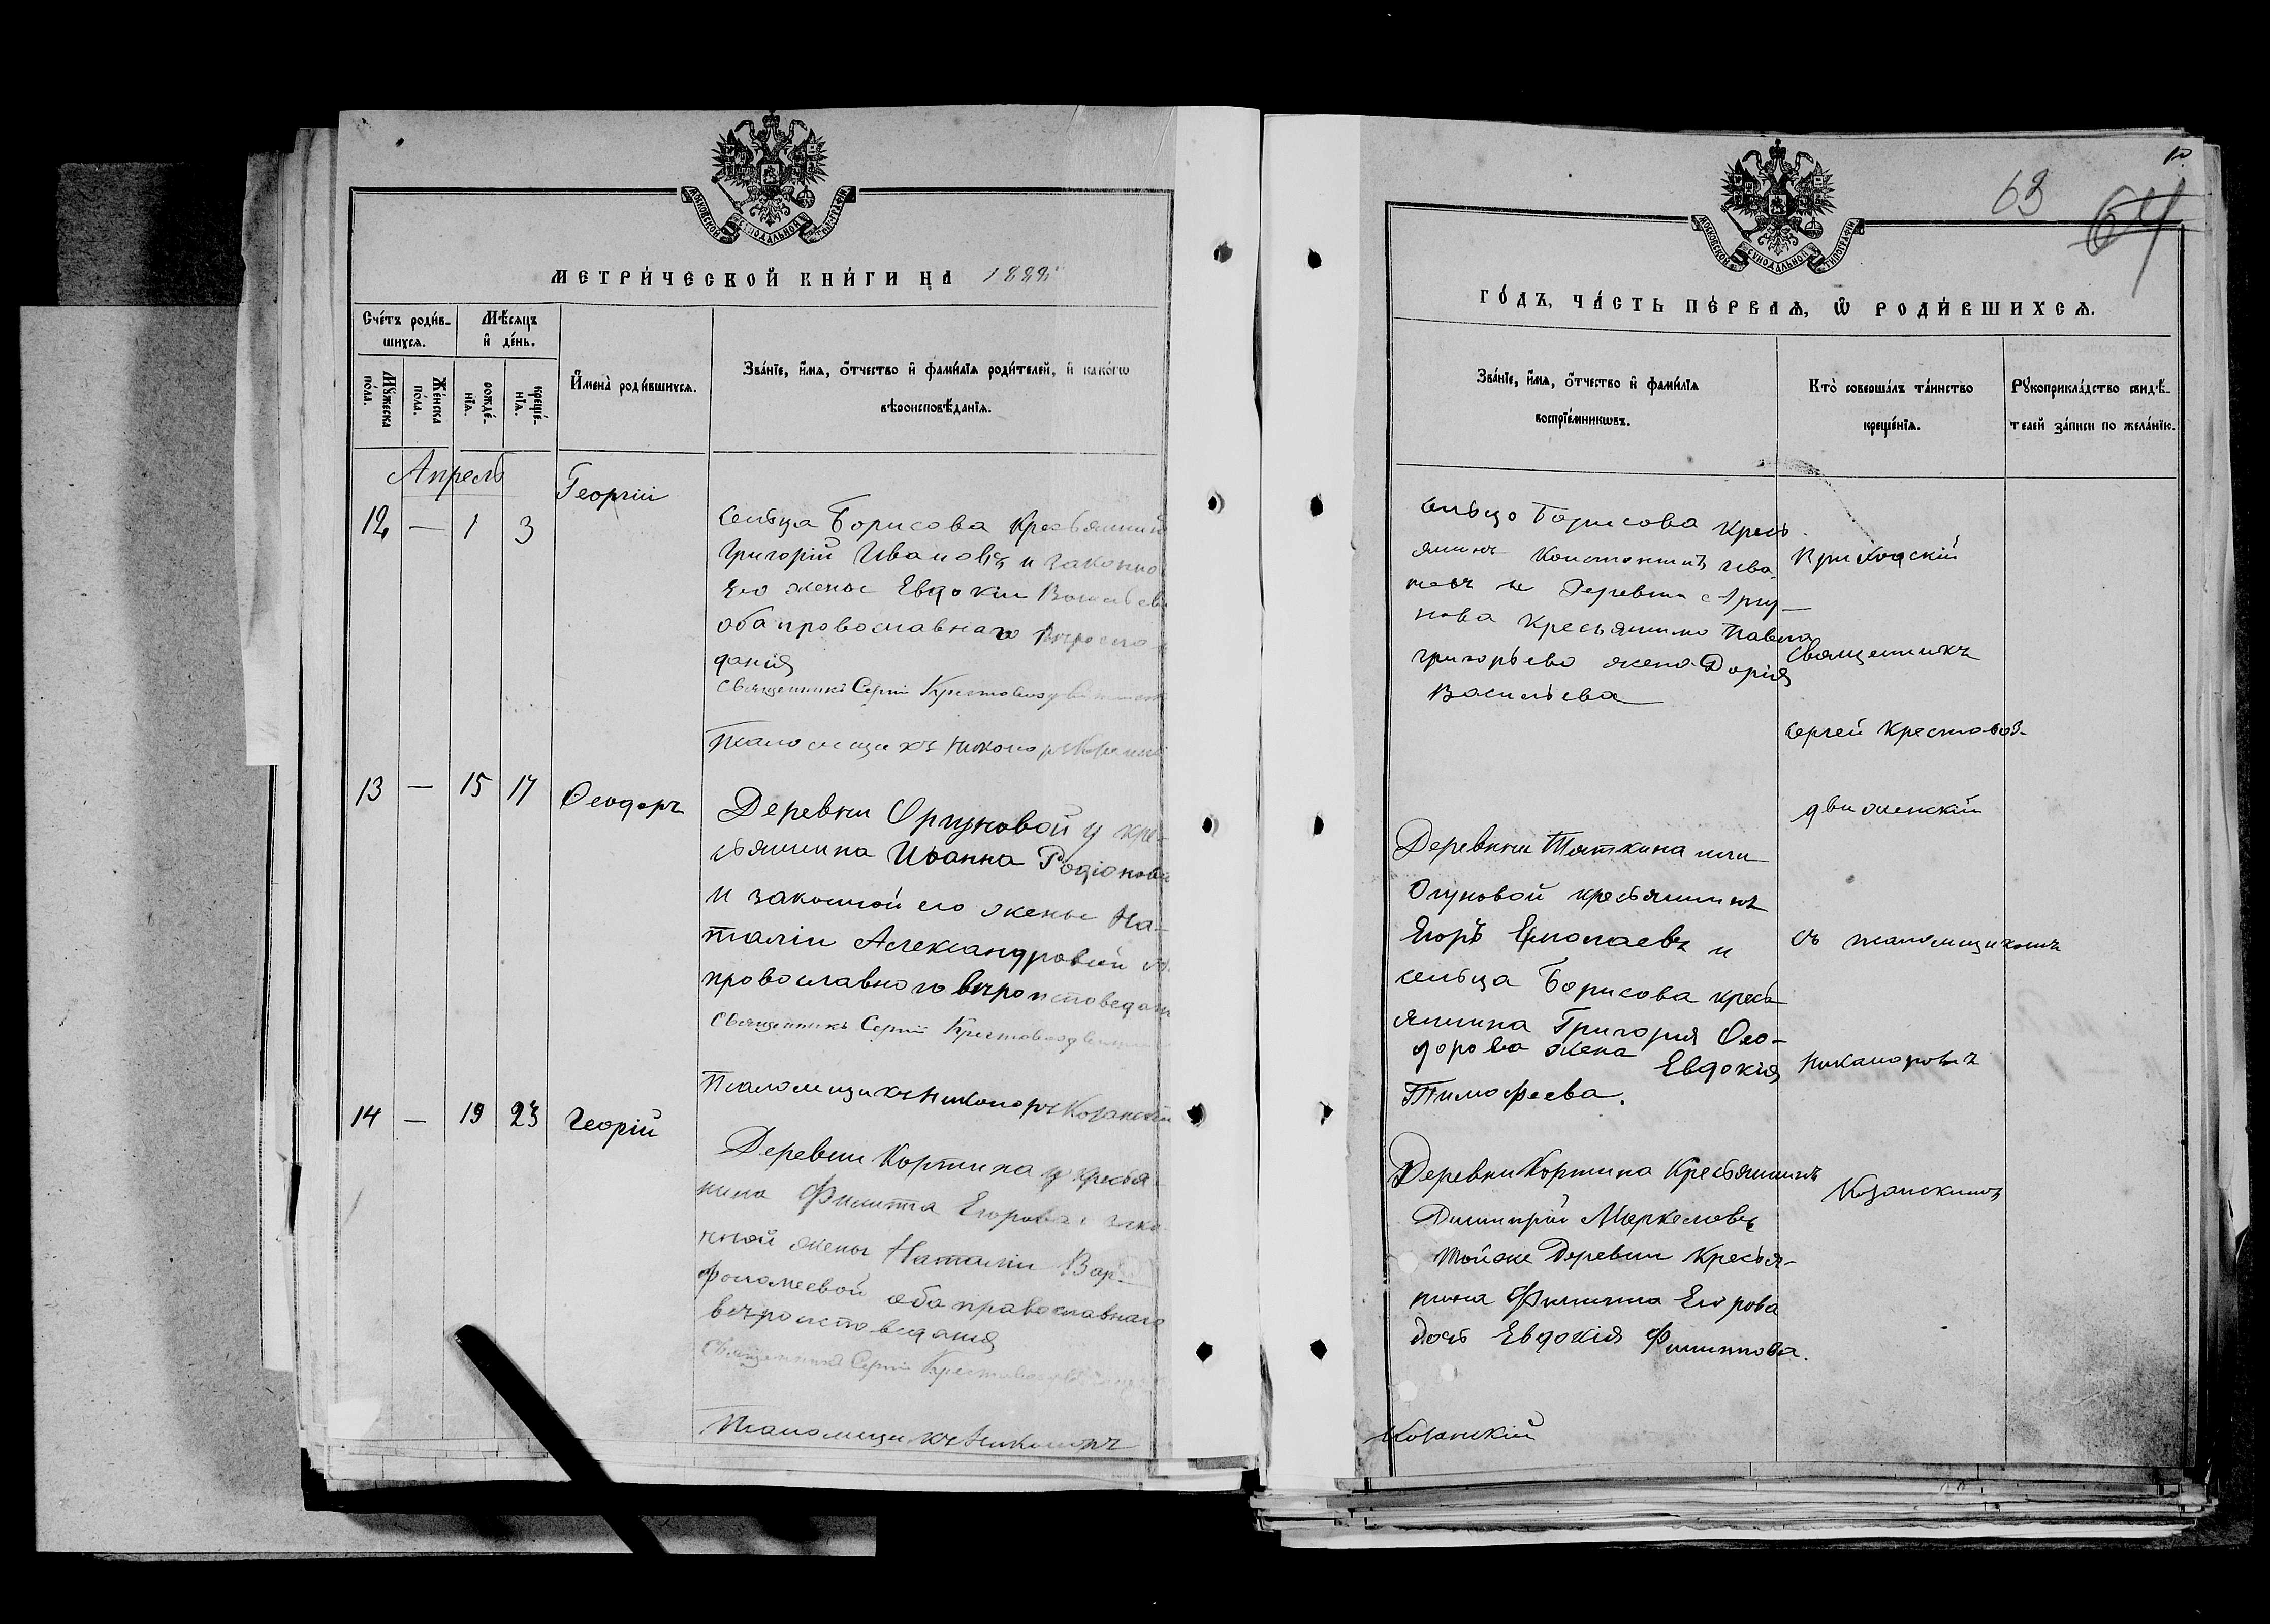 МОСКОВСКОЙ СѴНОДАЛЬНОЙ ТИПОГРАФІИ
МЕТРИ́ЧЕСКОЙ КНИ́ГИ НА 1882
Сче́тъ роди́в-
шихсѧ.
Мѣ́сѧцъ
и҆ де́нь.
Мꙋ́жеска
по́ла.
Же́нска
по́ла.
рожде́-
нїѧ.
креще́-
нїѧ.
И҆мена̀ роди́вшихсѧ.
Зва́нїе, и҆́мѧ, ѻ҆́тчество и҆ фами́лїѧ роди́телей, и҆ како́гѡ
вѣроисповѣ́данїѧ.
Апрель
12 — 1 3
Георгій
сельца Борисова Крестьянинъ
Григорій Ивановъ и законно
Его жены Евдокіи
оба провославнаго
данія
Священникъ Сергій Крестовоздвиженскій
Псаломщикъ Никоноръ
13 — 15 17 Ѳеодоръ
Деревни Оргуновой у кре-
стьянина Иоанна Родіонова
и законной его жены На-
таліи Александровой
провославного вероисповедан
Священникъ Сергій Крестовоздвиженскій
Псаломщикъ Никоноръ Козанскій
14 — 19 23 Георгій
Деревни Кортина у крестья-
нина Филиппа Егорова и зако-
нной жены Наталіи Вар-
фоломеевой оба православнаго
вероисповедания
Священникъ Сергій Крестовоздвиженскій
Псаломщикъ Никоноръ
63
64
МОСКОВСКОЙ СѴНОДАЛЬНОЙ ТИПОГРАФІИ
ГО́ДЪ, ЧА́СТЬ ПЕ́РВАѦ, Ѡ҆ РОДИ́ВШИХСѦ.
Зва́нїе, и҆́мѧ, ѻ҆́тчество и҆ фами́лїѧ
воспрїе́мникѡвъ.
Кто̀ соверша́лъ та́инство
креще́нїѧ.
Рꙋкоприкла́дство свидѣ́-
телей за́писи по жела́нїю.
сельцо Борисова кресь
янинъ Константинъ Ива-
новъ и Деревни Аргу-
нова Крестьянино Павла
григорьево жена Дарія
Васильева
Приходскій
Священникъ
Сергей Крестовоз-
движенскій
съ псаломщикомъ
Никаноромъ
Козанскимъ
Деревни Тяткина или
Огуновой крестьянинъ
Егоръ Ермолаевъ и
сельца Борисова кресть
янина Григория Ѳео-
дорова жена Евдокія
Тимофеева.
Деревни Кортина Крестьянинъ
Димитрій Маркеловъ
тойже Деревни Крестья-
нина Филиппа Егорова
дочь Евдокія Филиппова.
Козанскій